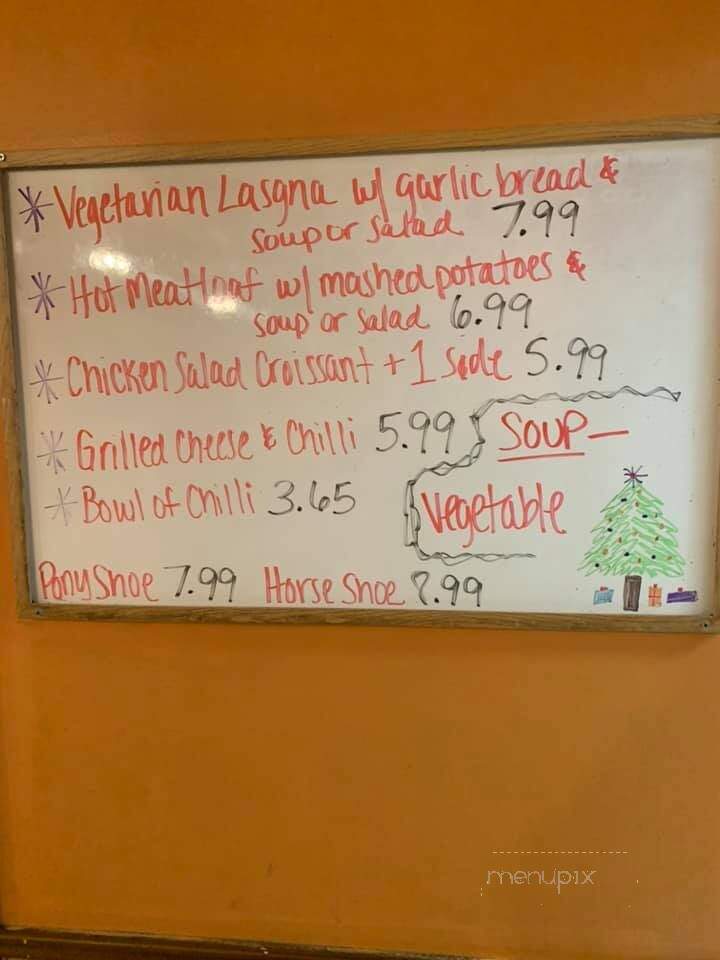 * Vegetarian Lasgna w/ garlic bread &
soup or salad 7.99
* Hot Meatloaf w/ mashed potatoes &
soup or salad 6.99
* Chicken Salad Croissant + 1 side 5.99
* Grilled Cheese & Chilli 5.99
* Bowl of Chilli 3.65
SOUP—
Vegetable
Pony Shoe 7.99 Horse Shoe .99
menupix